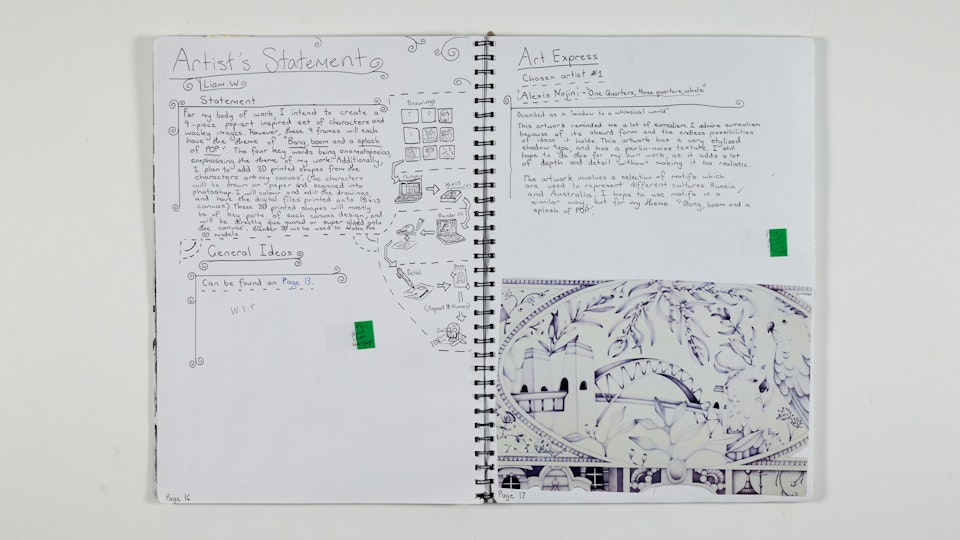 Artist's Statement
Liam.W
Statement
For my body of work, I intend to create a
9-piece pop-art inspired set of characters and
wacky images. However, these 9 frames will each
have the theme of "Bang, boom and a splash
of POP". The four key words being onomatopoeias,
emphasising the theme of my work. Additionally,
I plan to add 3D printed shapes from the
characters onto my canvas. (The characters
will be drawn on paper and scanned into
photoshop. I will colour and edit the drawings
and have the digital files printed onto
canvas) These 3D printed shapes will mostly
be of key parts of each canvas design, and
will be directly glue gunned or super glued onto
the canvas. Blender 3D will be used to make the
3D models.
General Ideas
Can be found on Page 13.
W I P
Drawings
? ?
Blender 3D
Detail
(Repeat 8 times)
Page 16
Art Express
Chosen artist #1
Alexis Nojini - "One Quarters, three quarters, whole"
Described as a "window to a whimsical world"
This artwork reminded me a lot of surrealism. I admire surrealism
because of its absurd form and the endless possibilities
of ideas it holds. This artwork has a very stylized
shadow type, and has a pencil-noise texture. I will
hope to do this for my own work, as it adds a lot
of depth and detail without making it too realistic.
The artwork involves a selection of motifs which
are used to represent different cultures Russia
and Australia. I hope to use motifs in a
similar way, but for my theme "Bang, boom and a
splash of POP".
Page 17